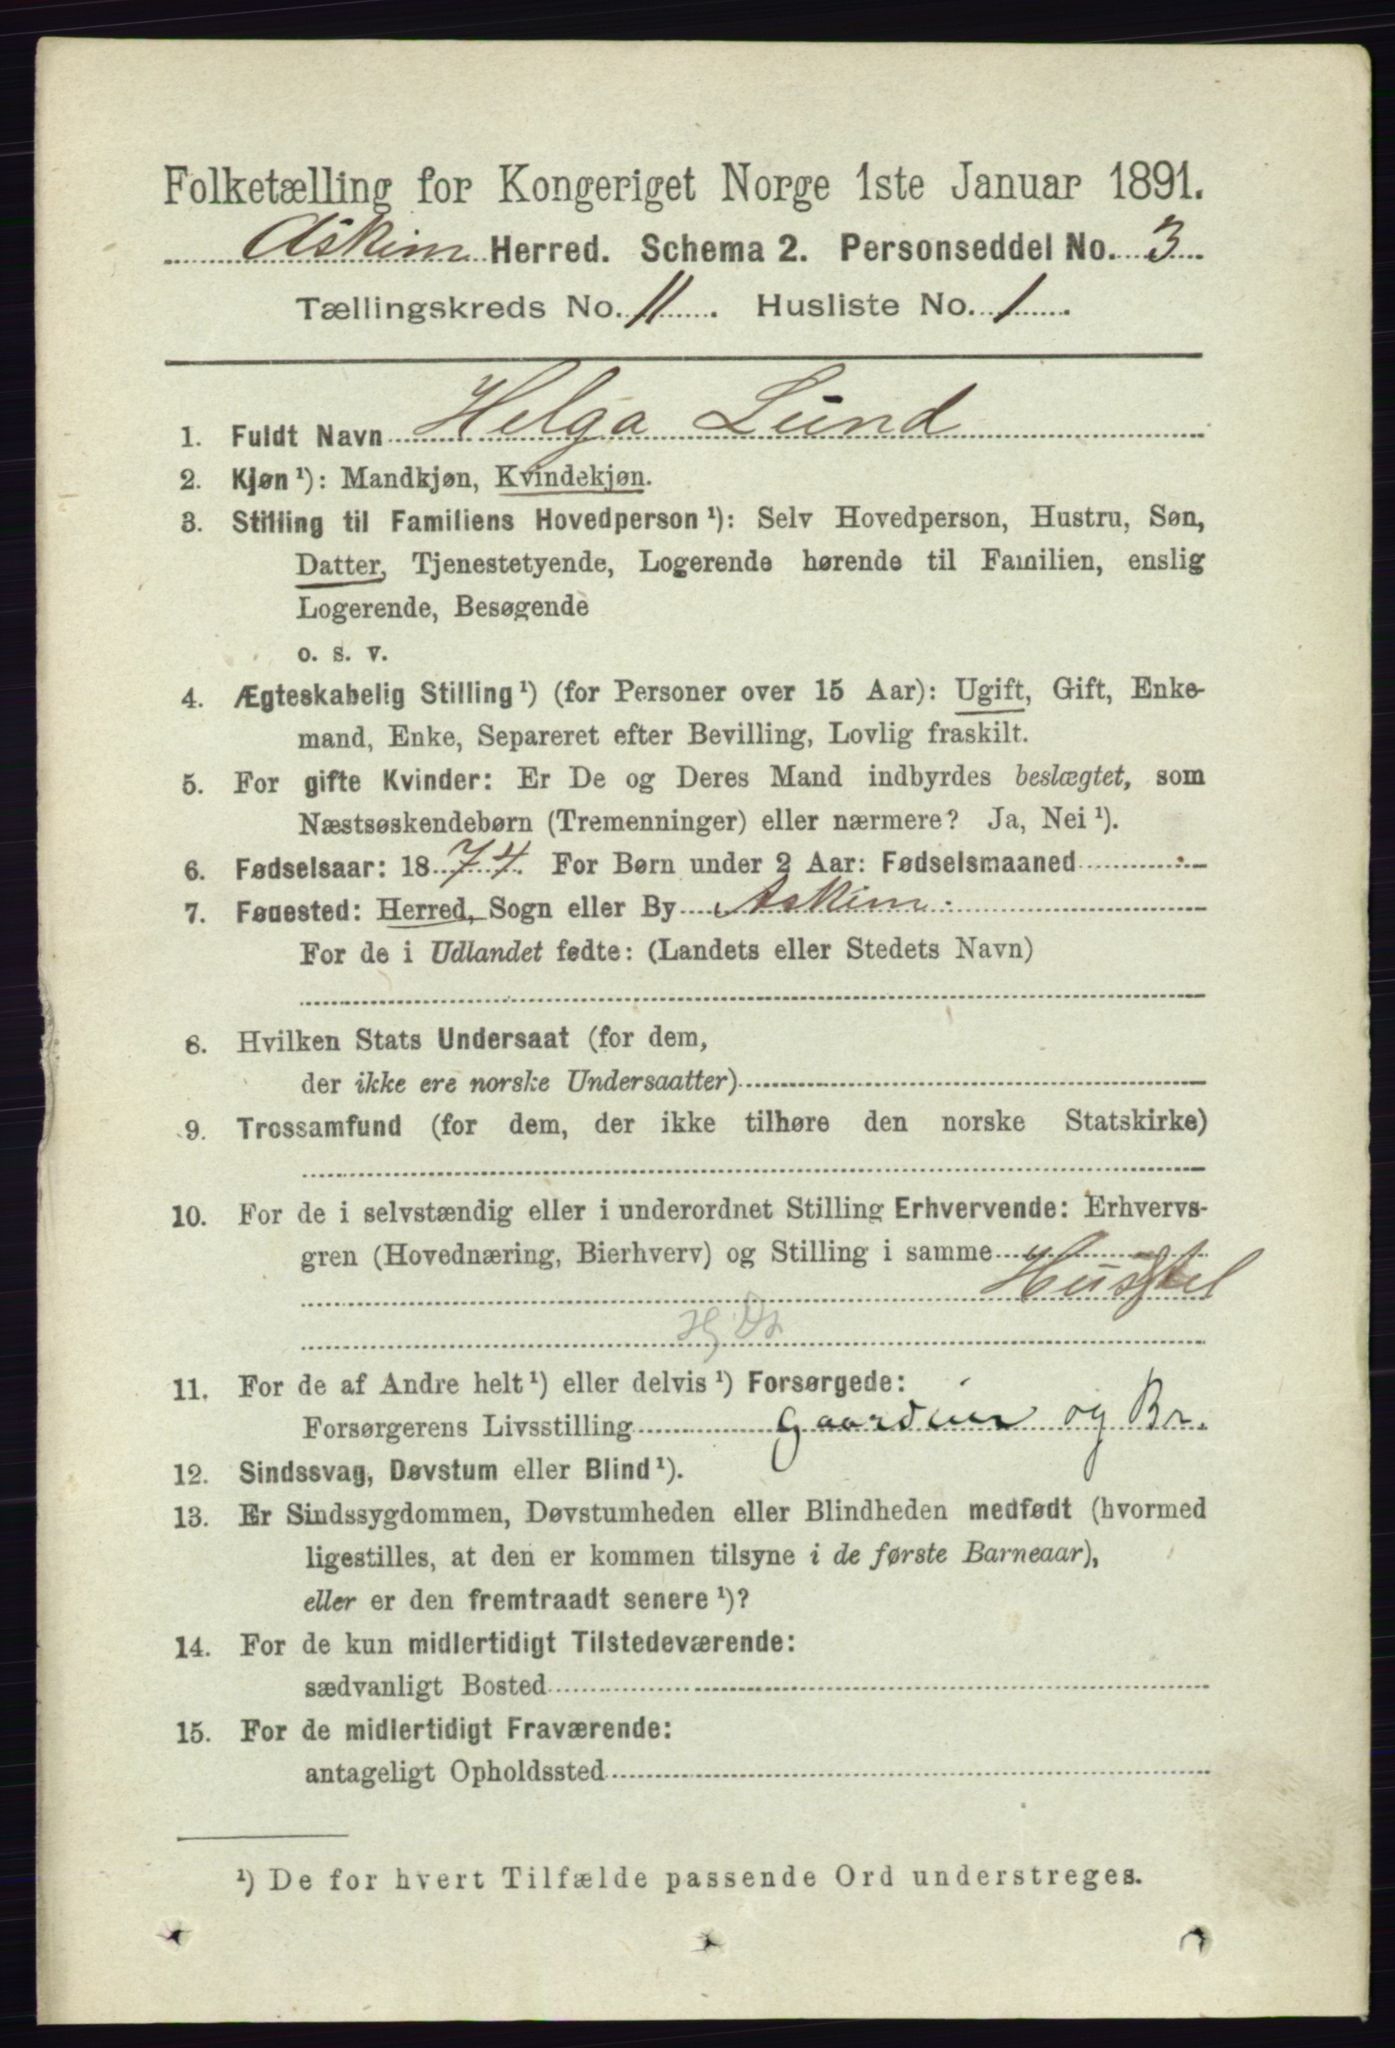 Folketælling for Kongeriget Norge 1ste Januar 1891.
Askim Herred. Schema 2. Personseddel No. 3
Tællingskreds No. 11. Husliste No. 1.
1. Fuldt Navn Helga Lund
2. Kjøn¹): Mandkjøn, Kvindekjøn.
3. Stilling til Familiens Hovedperson¹): Selv Hovedperson, Hustru, Søn,
Datter, Tjenestetyende, Logerende hørende til Familien, enslig
Logerende, Besøgende
o. s. v.
4. Ægteskabelig Stilling¹) (for Personer over 15 Aar): Ugift, Gift, Enke-
mand, Enke, Separeret efter Bevilling, Lovlig fraskilt.
5. For gifte Kvinder: Er De og Deres Mand indbyrdes beslægtet, som
Næstsøskendebørn (Tremenninger) eller nærmere? Ja, Nei¹).
6. Fødselsaar: 1874. For Børn under 2 Aar: Fødselsmaaned
7. Fødested: Herred, Sogn eller By Askim.
For de i Udlandet fødte: (Landets eller Stedets Navn)
8. Hvilken Stats Undersaat (for dem,
der ikke ere norske Undersaatter)
9. Trossamfund (for dem, der ikke tilhøre den norske Statskirke)
10. For de i selvstændig eller i underordnet Stilling Erhvervende: Erhvervs-
gren (Hovednæring, Bierhverv) og Stilling i samme
Husstel
11. For de af Andre helt¹) eller delvis¹) Forsørgede:
Forsørgerens Livsstilling og Br.
12. Sindssvag, Døvstum eller Blind¹).
13. Er Sindssygdommen, Døvstumheden eller Blindheden medfødt (hvormed
ligestilles, at den er kommen tilsyne i de første Barneaar),
eller er den fremtraadt senere¹)?
14. For de kun midlertidigt Tilstedeværende:
sædvanligt Bosted
15. For de midlertidigt Fraværende:
antageligt Opholdssted
¹) De for hvert Tilfælde passende Ord understreges.